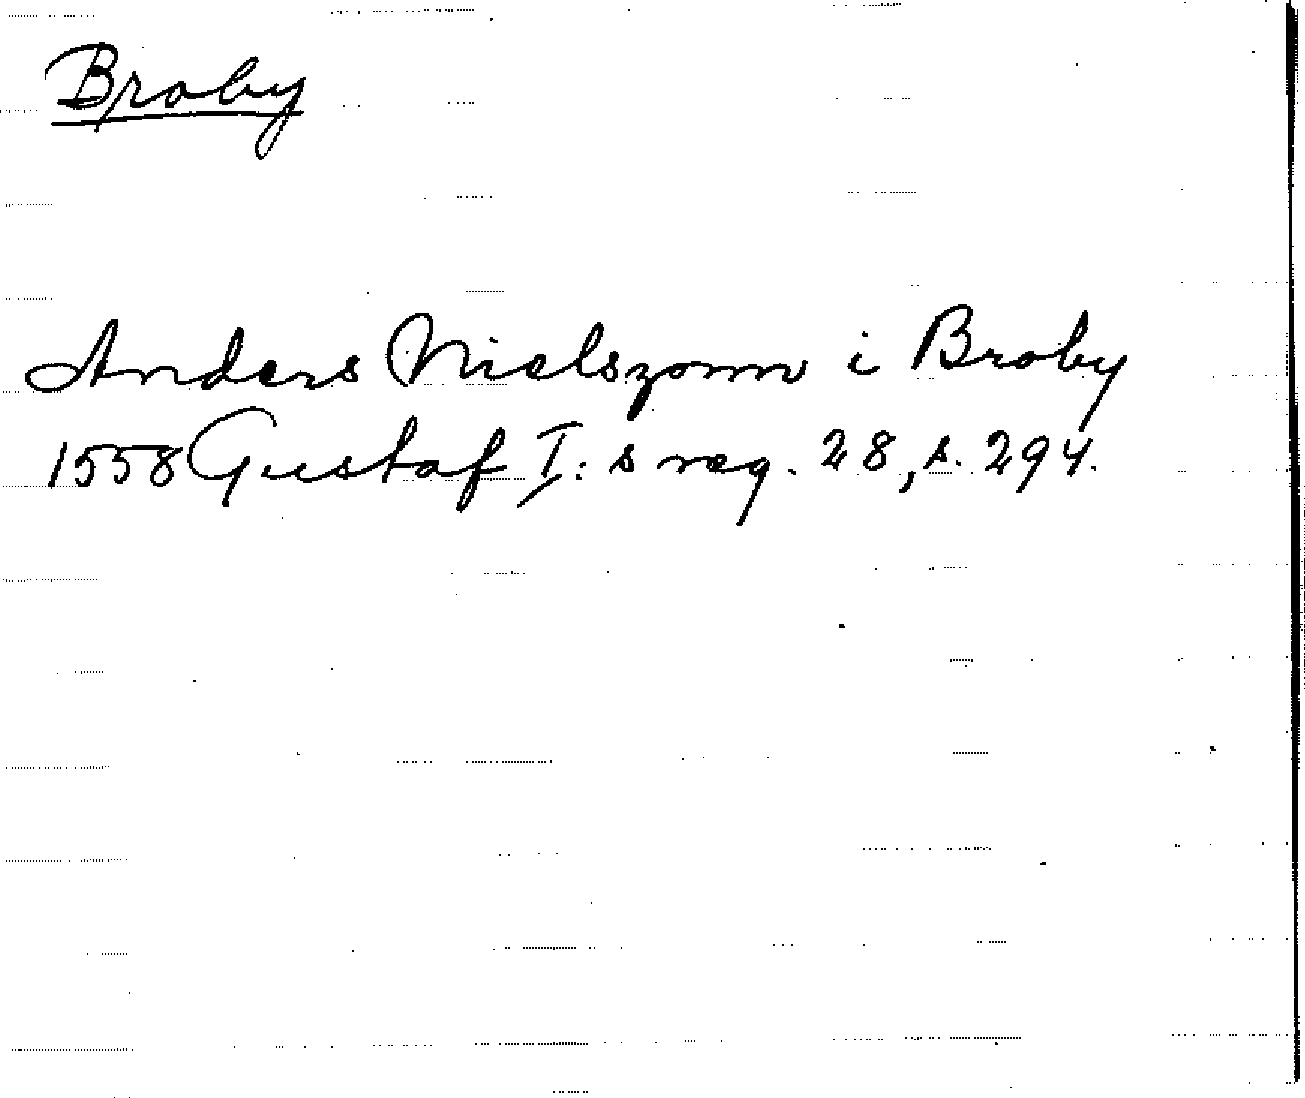 Broby
Anders Nielszonn i Broby
1558 Gustaf I:s reg. 28, s. 294.